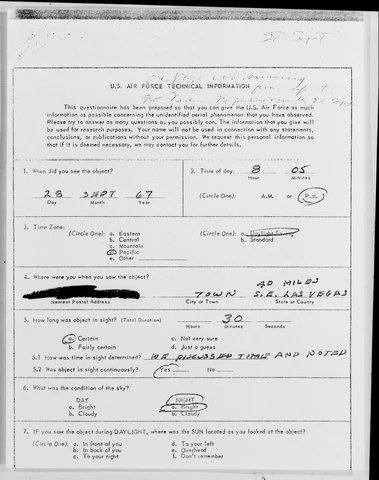 U.S. AIR FORCE TECHNICAL INFORMATION
This questionnaire has been prepared so that you can give the U.S. Air Force as much
information as possible concerning the unidentified aerial phenomenon that you have observed.
Please try to answer as many questions as you possibly can. The information that you give will
be used for research purposes. Your name will not be used in connection with any statements,
conclusions, or publications without your permission. We request this personal information so
that if it is deemed necessary, we may contact you for further details.
1. When did you see the object?
28 SEPT 67
Day Month Year
2. Time of day: 8 05
Hour Minutes
(Circle One): A.M. or P.M.
3. Time Zone:
(Circle One): a. Eastern
b. Central
c. Mountain
d. Pacific
e. Other
(Circle One): a. Daylight Saving
b. Standard
4. Where were you when you saw the object?
40 MILES
TOWN S.E. LAS VEGAS
Nearest Postal Address City or Town State or County
5. How long was object in sight? (Total Duration) 30
Hours Minutes Seconds
a. Certain c. Not very sure
b. Fairly certain d. Just a guess
5.1 How was time in sight determined? WE DISCUSSED TIME AND NOTED
5.2 Was object in sight continuously? Yes No
6. What was the condition of the sky?
DAY NIGHT
a. Bright a. Bright
b. Cloudy b. Cloudy
7. IF you saw the object during DAYLIGHT, where was the SUN located as you looked at the object?
(Circle One): a. In front of you d. To your left
b. In back of you e. Overhead
c. To your right f. Don't remember